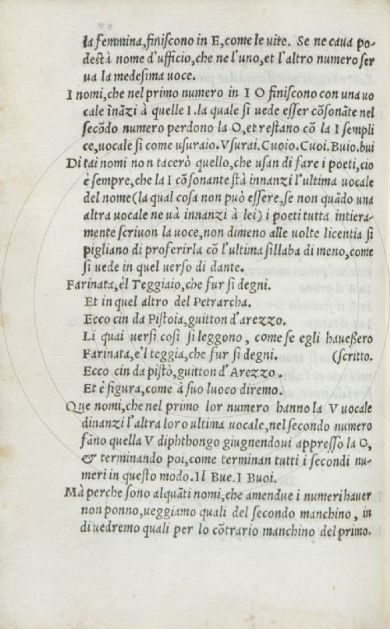 la femmina, finiscono in E, come le vite. Se ne caua po-
destà nome d'ufficio, che ne l'uno, et l'altro numero ser
ua la medesima uoce.
I nomi, che nel primo numero in I O finiscon con una uo
cale inãzi à quelle I. la quale si uede esser cõsonãte nel
secõdo numero perdono la O, et restano cõ la I sempli
ce, uocale si come usuraio. Vsurai. Cuoio. Cuoi. Buio. bui
Di tai nomi non tacerò quello, che usan di fare i poeti, cio
è sempre, che la I cõsonante stà innanzi l'ultima uocale
del nome (la qual cosa non può essere, se non quãdo una
altra uocale ne uà innanzi à lei) i poeti tutta intiera-
mente scriuon la uoce, non dimeno alle uolte licentia si
pigliano di proferirla cõ l'ultima sillaba di meno, come
si uede in quel uerso di dante.
Farinata, e'l Teggiaio, che fur si degni.
Et in quel altro del Petrarcha.
Ecco cin da Pistoia, guitton d'arezzo.
Li quai uersi così si leggono, come se egli haueßero
Farinata, e'l teggia, che fur si degni. (scritto.
Ecco cin da pistò, guitton d'Arezzo.
Et è figura, come à suo luoco diremo.
Que nomi, che nel primo lor numero hanno la V uocale
dinanzi l'altra loro ultima uocale, nel secondo numero
fãno quella V diphthongo giugnendoui appresso la O,
& terminando poi, come terminan tutti i secondi nu-
meri in questo modo. Il Bue. I Buoi.
Mà perche sono alquãti nomi, che amendue i numeri hauer
non ponno, ueggiamo quali del secondo manchino, in
di uedremo quali per lo cõtrario manchino del primo.